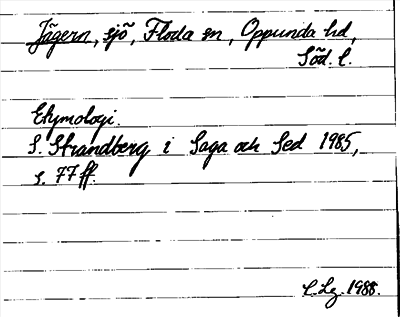 Jägern, sjö, Floda sn, Oppunda hd,
Söd. l.
Etymologi.
S. Strandberg i Saga och Sed 1985,
s. 77 ff.
L.Lg. 1988.